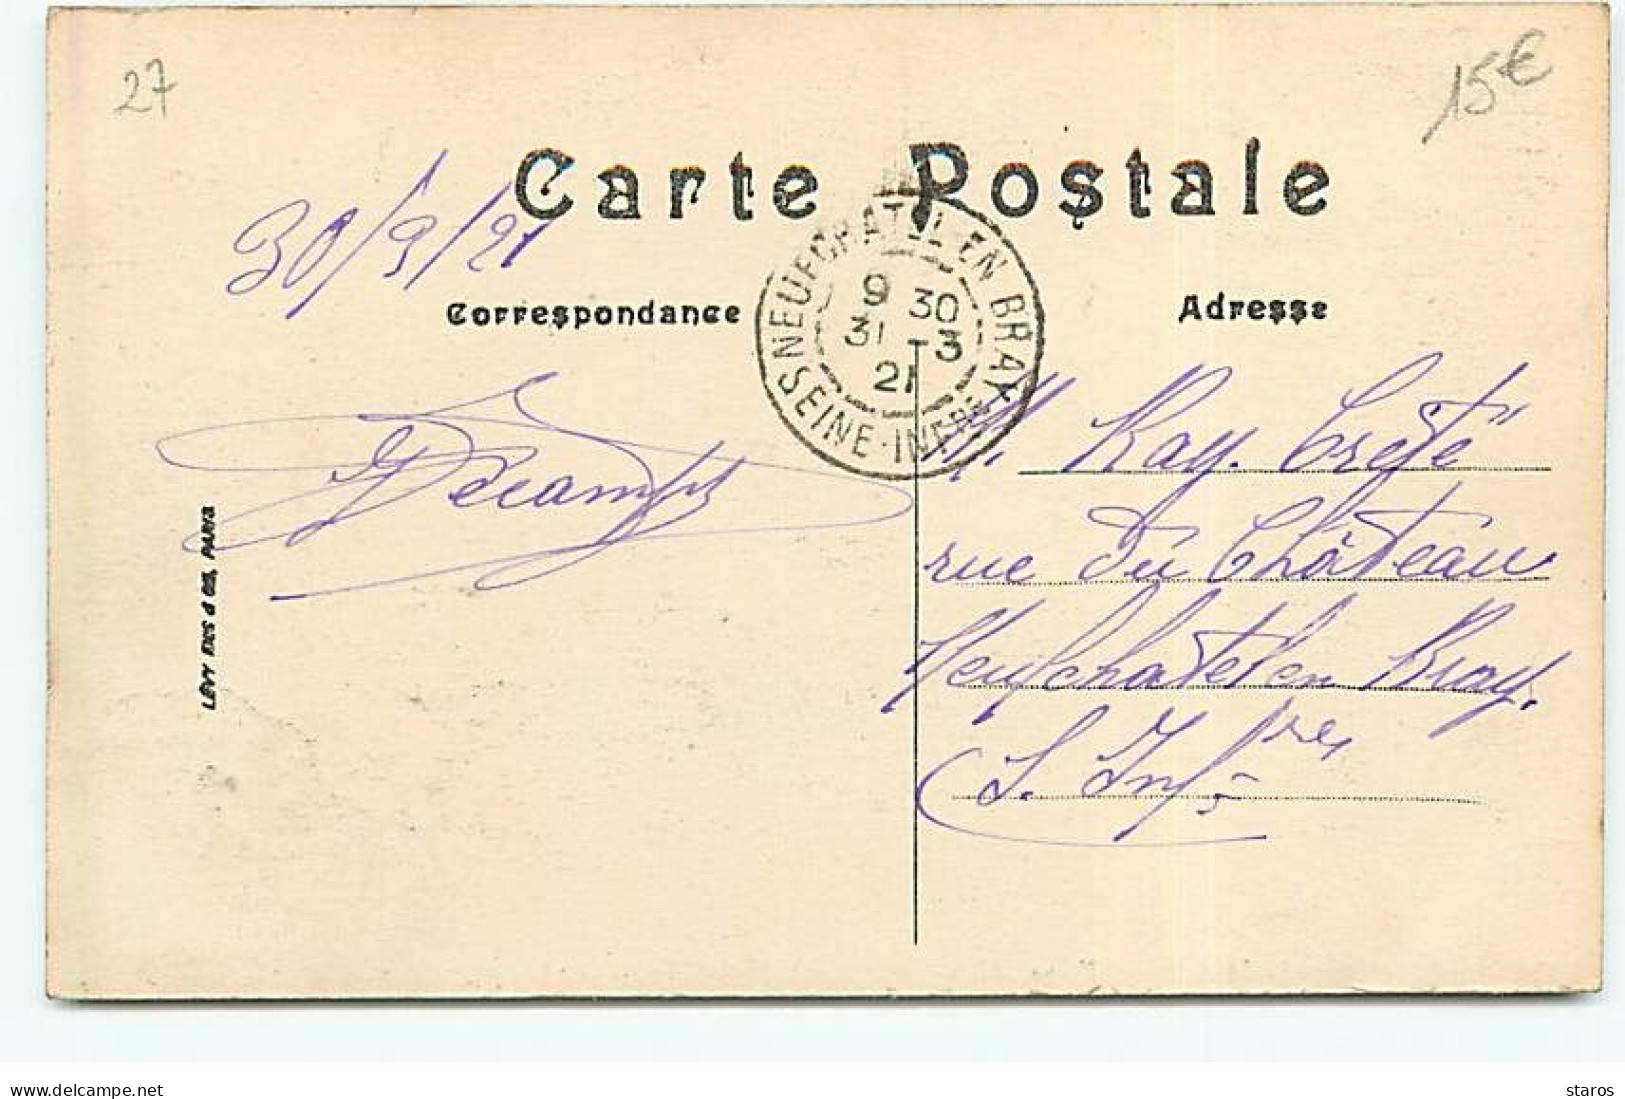 27
15€
Carte Postale
30/3/21
Correspondance
Adresse
NEUFCHATEL EN BRAY
9 30
31 - 3
21
SEINE-INFRE
Decamps
M. Ray. Crété
rue du Château
Neufchatel en Bray.
S. Infre
LÉVY FILS & CIE, PARIS
www.delcampe.net
staros